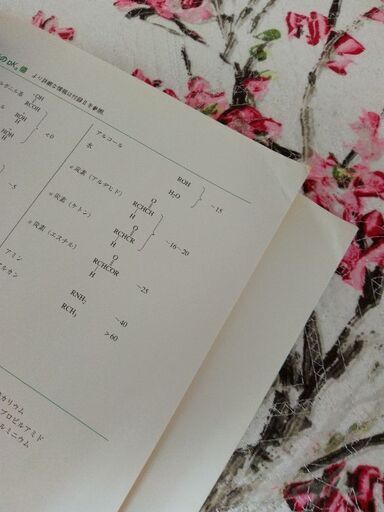 のpKa値 より詳細な情報は付録Ⅱを参照.
ルボニル基 +OH
RCOH
ROH
H
HOH
H
<0
~5
アルコール ROH
水 H₂O
~15
α炭素（アルデヒド） O
RCHCH
H
α炭素（ケトン） O
RCHCR
H
~16-20
α炭素（エステル） O
RCHCOR
H
~25
アミン RNH₂ ~40
ルカン RCH₃ >60
カリウム
プロピルアミド
ルミニウム